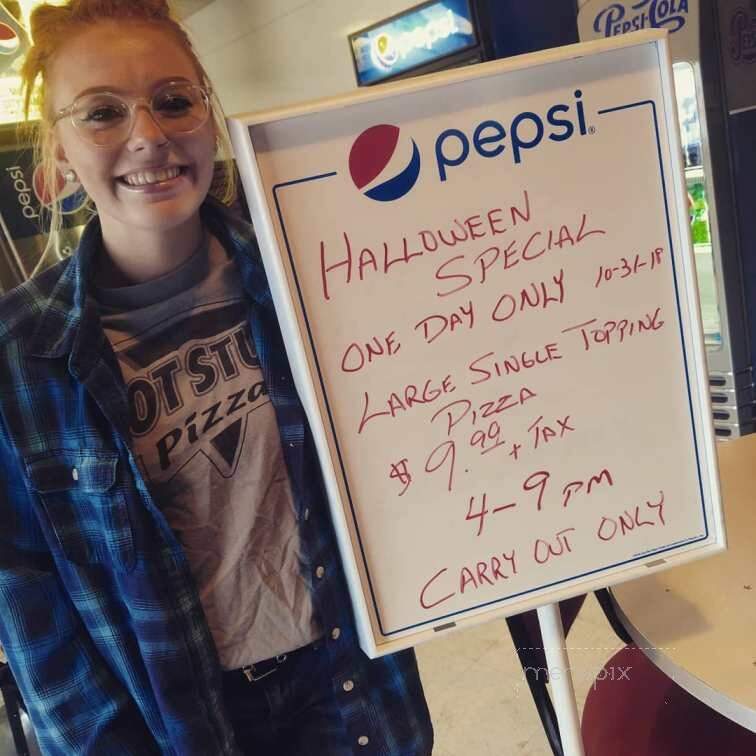 pepsi
PEPSI-COLA
pepsi
pepsi
HALLOWEEN
SPECIAL
ONE DAY ONLY 10-31-18
LARGE SINGLE TOPPING
PIZZA
$9.99 + TAX
4-9 PM
CARRY OUT ONLY
OT STU
Pizza
menupix